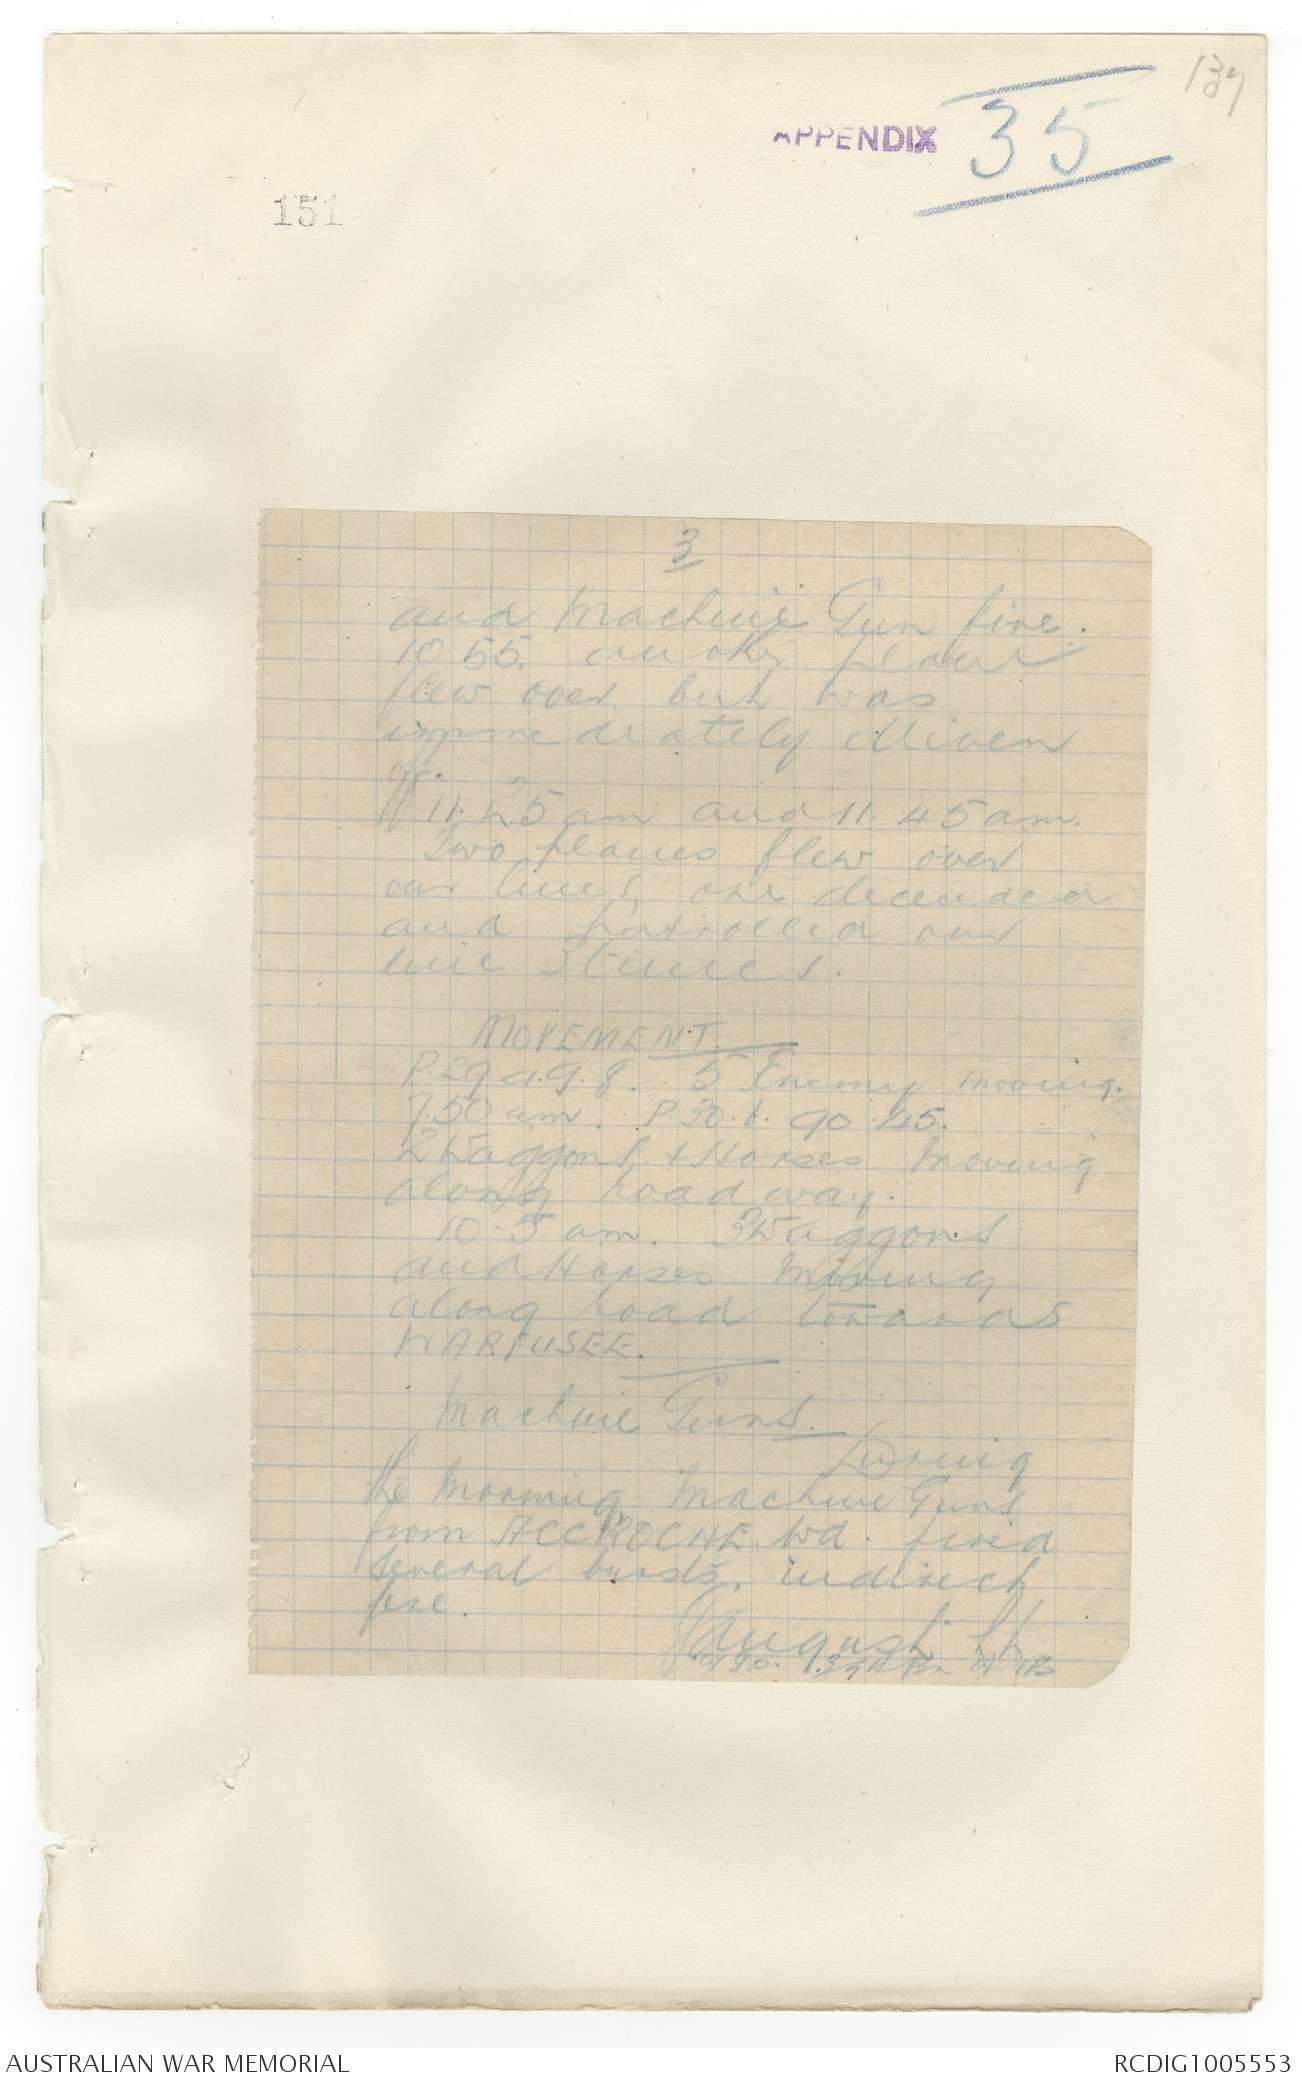 137
APPENDIX 35
151
3
and Machine Gun fire.
10.55. another plane
flew over but was
immediately driven
off.
11.25 am and 11.45 am.
Two planes flew over
our lines, one decended
and patrolled our
line 3 times.
MOVEMENT.
P.29 a.9.8. 5 Enemy moving.
7.50 am. P.30. 90.45.
2 Waggons + Horses moving
along road way.
10.5 am. 3 Waggons
and Horses moving
along road towards
WARFUSEE.
Machine Guns.
During
the morning Machine Guns
from ACCROCHE Wd. fired
several bursts, indirect
fire.
August Lt
I.O. 39th Bn
AUSTRALIAN WAR MEMORIAL
RCDIG1005553